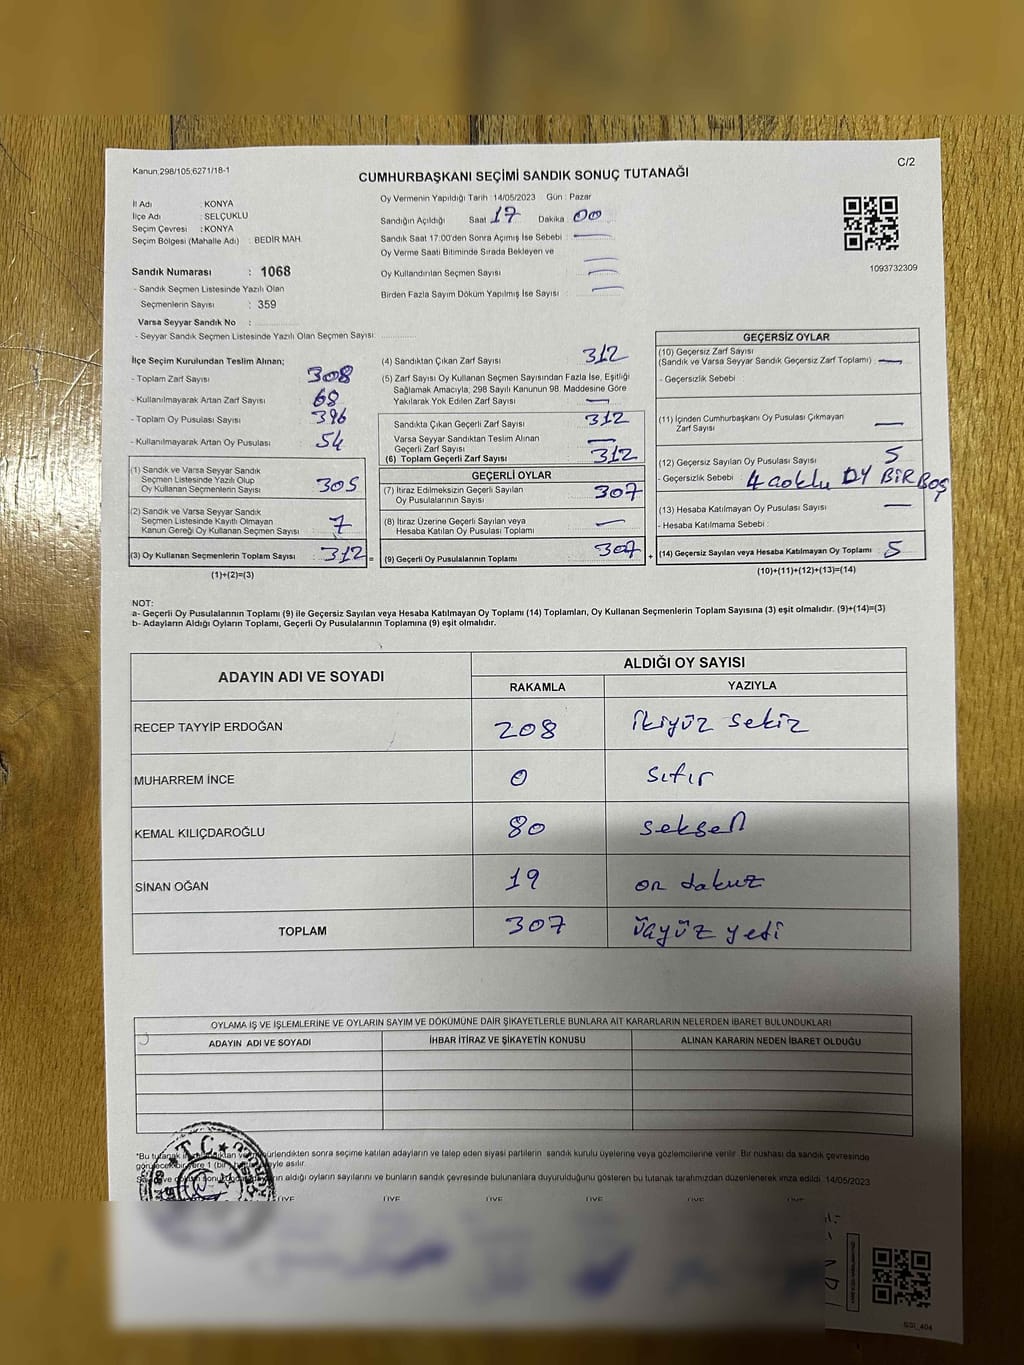 Kanun;298/105;6271/18-1
C/2
CUMHURBAŞKANI SEÇİMİ SANDIK SONUÇ TUTANAĞI
İl Adı : KONYA
İlçe Adı : SELÇUKLU
Seçim Çevresi : KONYA
Seçim Bölgesi (Mahalle Adı) : BEDİR MAH.
Sandık Numarası : 1068
- Sandık Seçmen Listesinde Yazılı Olan
Seçmenlerin Sayısı : 359
Varsa Seyyar Sandık No :
- Seyyar Sandık Seçmen Listesinde Yazılı Olan Seçmen Sayısı:
Oy Vermenin Yapıldığı Tarih : 14/05/2023 Gün : Pazar
Sandığın Açıldığı Saat 17 Dakika : 00
Sandık Saat 17:00'den Sonra Açımış İse Sebebi : —
Oy Verme Saati Bitiminde Sırada Bekleyen ve
Oy Kullandırılan Seçmen Sayısı : —
Birden Fazla Sayım Döküm Yapılmış İse Sayısı : —
1093732309
İlçe Seçim Kurulundan Teslim Alınan;
- Toplam Zarf Sayısı : 308
- Kullanılmayarak Artan Zarf Sayısı : 68
- Toplam Oy Pusulası Sayısı : 396
- Kullanılmayarak Artan Oy Pusulası : 54
(1) Sandık ve Varsa Seyyar Sandık
Seçmen Listesinde Yazılı Olup
Oy Kullanan Seçmenlerin Sayısı : 305
(2) Sandık ve Varsa Seyyar Sandık
Seçmen Listesinde Kayıtlı Olmayan
Kanun Gereği Oy Kullanan Seçmen Sayısı : 7
(3) Oy Kullanan Seçmenlerin Toplam Sayısı : 312 =
(1)+(2)=(3)
(4) Sandıktan Çıkan Zarf Sayısı : 312
(5) Zarf Sayısı Oy Kullanan Seçmen Sayısından Fazla İse, Eşitliği
Sağlamak Amacıyla, 298 Sayılı Kanunun 98. Maddesine Göre
Yakılarak Yok Edilen Zarf Sayısı : —
Sandıkta Çıkan Geçerli Zarf Sayısı : 312
Varsa Seyyar Sandıktan Teslim Alınan
Geçerli Zarf Sayısı : —
(6) Toplam Geçerli Zarf Sayısı : 312
GEÇERLİ OYLAR
(7) İtiraz Edilmeksizin Geçerli Sayılan
Oy Pusulalarının Sayısı : 307
(8) İtiraz Üzerine Geçerli Sayılan veya
Hesaba Katılan Oy Pusulası Toplamı : —
(9) Geçerli Oy Pusulalarının Toplamı : 307 +
GEÇERSİZ OYLAR
(10) Geçersiz Zarf Sayısı
(Sandık ve Varsa Seyyar Sandık Geçersiz Zarf Toplamı) : —
- Geçersizlik Sebebi :
(11) İçinden Cumhurbaşkanı Oy Pusulası Çıkmayan
Zarf Sayısı : —
(12) Geçersiz Sayılan Oy Pusulası Sayısı : 5
- Geçersizlik Sebebi : 4 çoklu OY BİR BOŞ
(13) Hesaba Katılmayan Oy Pusulası Sayısı : —
- Hesaba Katılmama Sebebi :
(14) Geçersiz Sayılan veya Hesaba Katılmayan Oy Toplamı : 5
(10)+(11)+(12)+(13)=(14)
NOT:
a- Geçerli Oy Pusulalarının Toplamı (9) ile Geçersiz Sayılan veya Hesaba Katılmayan Oy Toplamı (14) Toplamları, Oy Kullanan Seçmenlerin Toplam Sayısına (3) eşit olmalıdır. (9)+(14)=(3)
b- Adayların Aldığı Oyların Toplamı, Geçerli Oy Pusulalarının Toplamına (9) eşit olmalıdır.
ADAYIN ADI VE SOYADI
ALDIĞI OY SAYISI
RAKAMLA YAZIYLA
RECEP TAYYİP ERDOĞAN 208 ikiyüz sekiz
MUHARREM İNCE 0 sıfır
KEMAL KILIÇDAROĞLU 80 seksen
SİNAN OĞAN 19 on dokuz
TOPLAM 307 üçyüz yedi
OYLAMA İŞ VE İŞLEMLERİNE VE OYLARIN SAYIM VE DÖKÜMÜNE DAİR ŞİKAYETLERLE BUNLARA AİT KARARLARIN NELERDEN İBARET BULUNDUKLARI
ADAYIN ADI VE SOYADI İHBAR İTİRAZ VE ŞİKAYETİN KONUSU ALINAN KARARIN NEDEN İBARET OLDUĞU
*Bu tutanak sonra seçime katılan adayların ve talep eden siyasi partilerin sandık kurulu üyelerine veya gözlemcilerine verilir. Bir nüshası da sandık çevresinde
asılır.
aldığı oyların sayılarını ve bunların sandık çevresinde bulunanlara duyurulduğunu gösteren bu tutanak tarafımızdan düzenlenerek imza edildi. 14/05/2023
T.C.
ÜYE ÜYE ÜYE ÜYE ÜYE